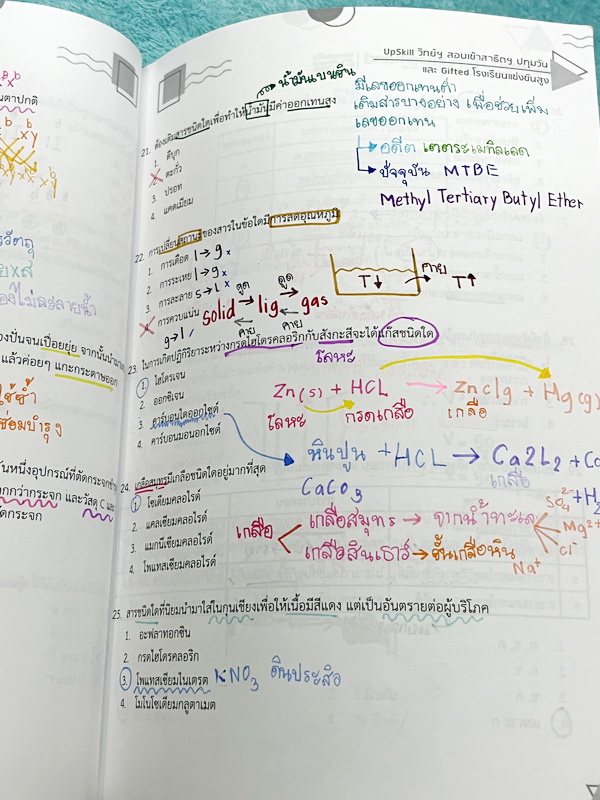 UpSkill วิทย์ฯ สอบเข้าสาธิตฯ ปทุมวัน
และ Gifted โรงเรียนแข่งขันสูง
น้ำมันเบนซิน
มีเลขออกเทนต่ำ
เติมสารบางอย่าง เพื่อช่วยเพิ่ม
เลขออกเทน
อดีต เตตระเมทิลเลด
ปัจจุบัน MTBE
Methyl Tertiary Butyl Ether
21. ต้องเติมสารชนิดใดเพื่อทำให้น้ำมันมีค่าออกเทนสูง
1. ดีบุก
2. ตะกั่ว
3. ปรอท
4. แคดเมียม
22. การเปลี่ยนสถานะของสารในข้อใดมีการลดอุณหภูมิ
1. การเดือด l → g x
2. การระเหย l → g x
3. การละลาย s → l x
4. การควบแน่น
g → l /
ดูด ดูด
solid → liq → gas
คาย คาย
T↓ คาย T↑
23. ในการเกิดปฏิกิริยาระหว่างกรดไฮโดรคลอริกกับสังกะสีจะได้แก๊สชนิดใด
โลหะ
1. ไฮโดรเจน
2. ออกซิเจน
3. คาร์บอนไดออกไซด์
4. คาร์บอนมอนอกไซด์
Zn(s) + HCL → Znclg + Hg(g)
โลหะ กรดเกลือ เกลือ
หินปูน + HCL → Ca2L2 + Co
CaCO3 เกลือ + H
24. เกลือสมุทรมีเกลือชนิดใดอยู่มากที่สุด
1. โซเดียมคลอไรด์
2. แคลเซียมคลอไรด์
3. แมกนีเซียมคลอไรด์
4. โพแทสเซียมคลอไรด์
เกลือ
เกลือสมุทร → จากน้ำทะเล
เกลือสินเธาว์ → ชั้นเกลือหิน
SO4 2-
Mg2+
Cl-
Na+
25. สารชนิดใดที่นิยมนำมาใส่ในกุนเชียงเพื่อให้เนื้อมีสีแดง แต่เป็นอันตรายต่อผู้บริโภค
1. อะฟลาทอกซิน
2. กรดไฮโดรคลอริก
3. โพแทสเซียมไนเตรต KNO3 ดินประสิว
4. โมโนโซเดียมกลูตาเมต